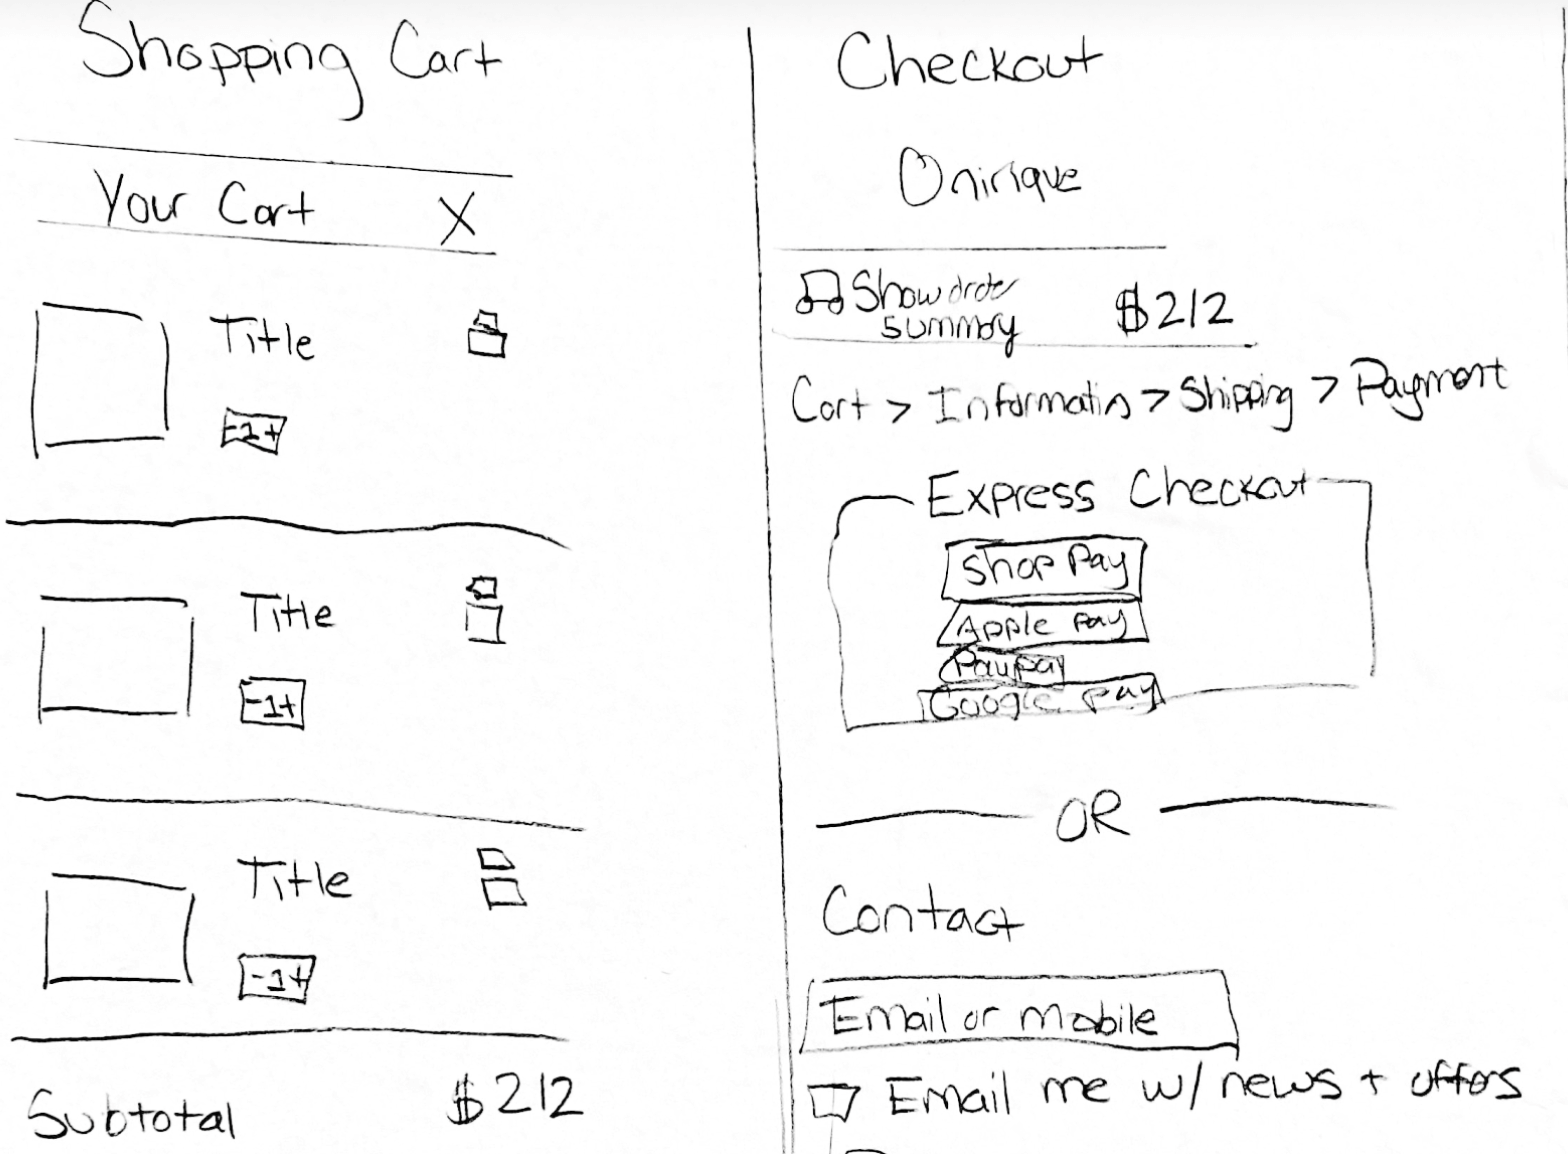 Shopping Cart
Your Cart X
Title
-1+
Title
-1+
Title
-1+
Subtotal $212
Checkout
Onirique
Show order
summary $212
Cart > Information > Shipping > Payment
Express Checkout
Shop Pay
Apple pay
Paypal
Google pay
OR
Contact
Email or mobile
Email me w/ news + offers